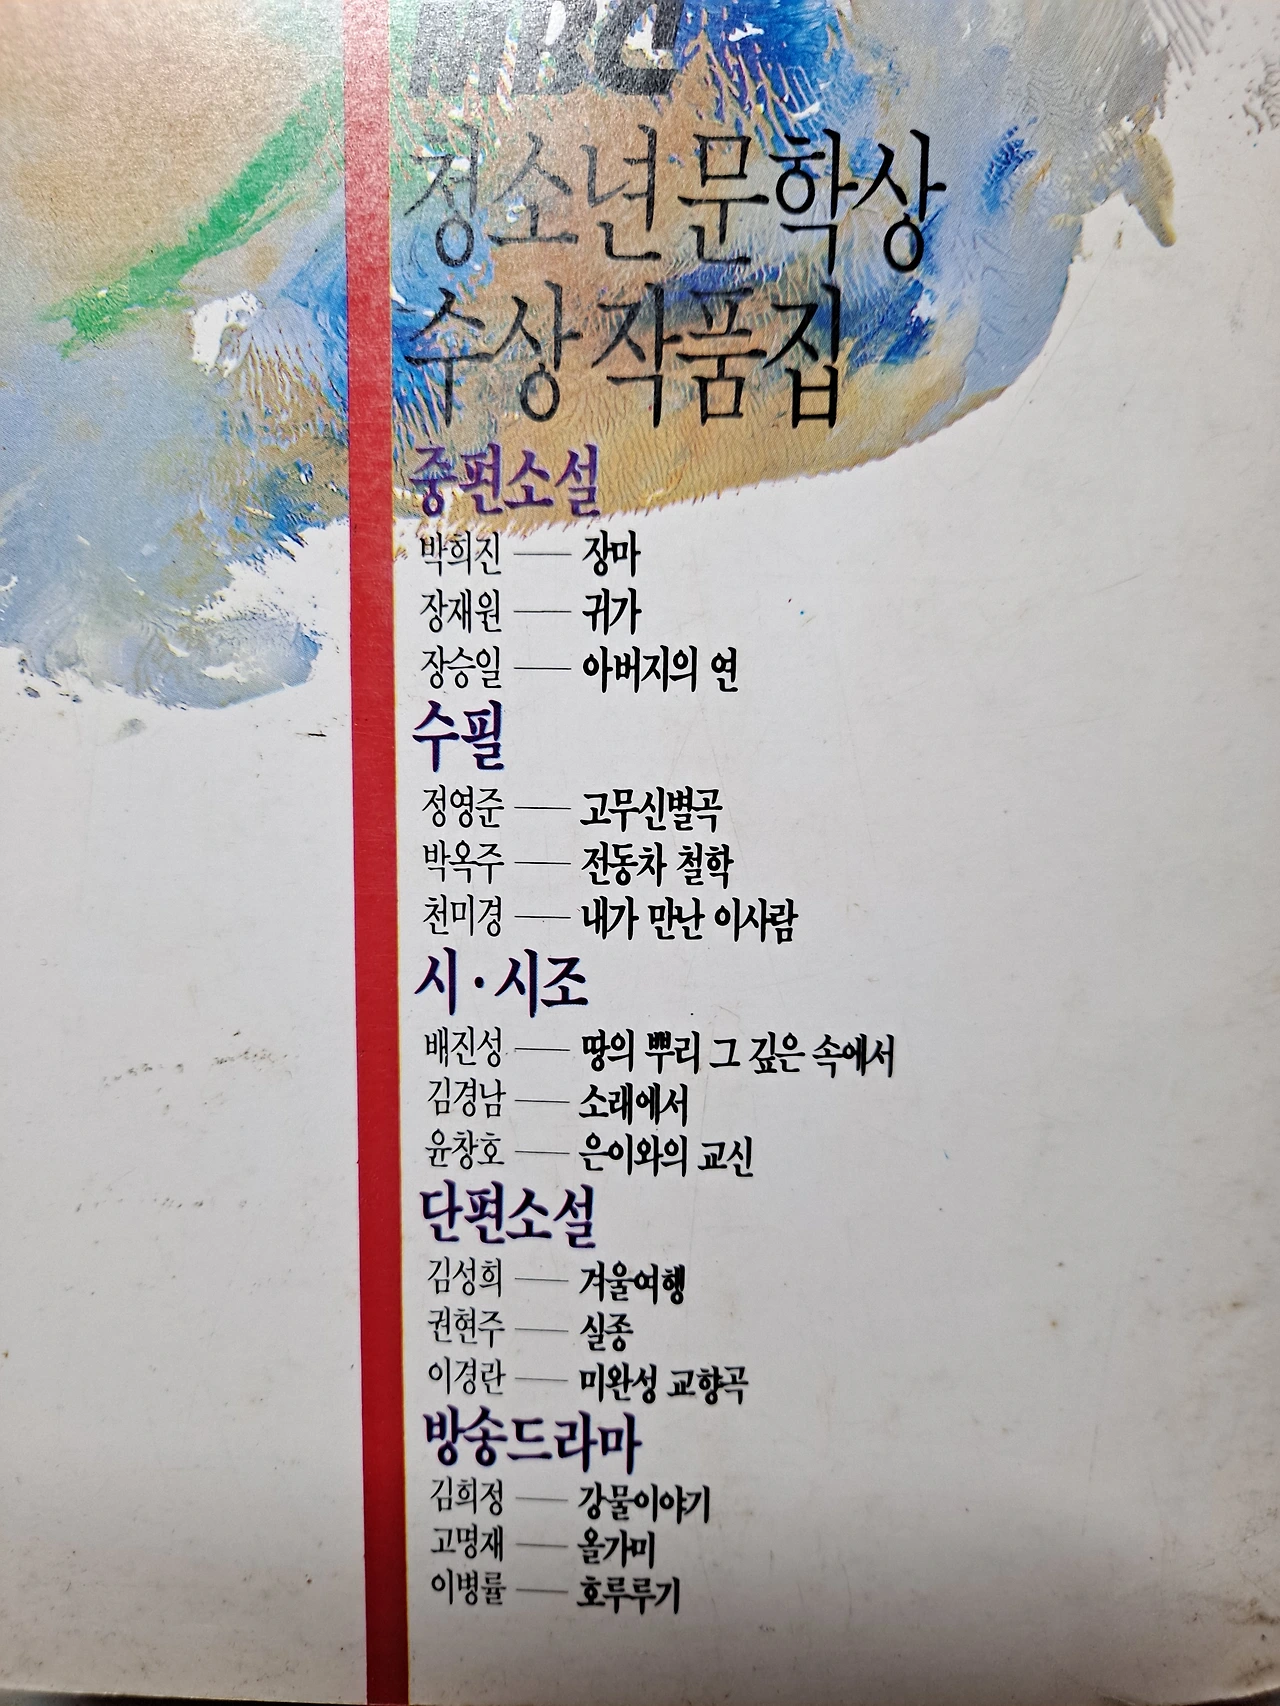 청소년 문학상
수상 작품집
중편소설
박희진 — 장마
장재원 — 귀가
장승일 — 아버지의 연
수필
정영준 — 고무신별곡
박옥주 — 전동차 철학
천미경 — 내가 만난 이사람
시·시조
배진성 — 땅의 뿌리 그 깊은 속에서
김경남 — 소래에서
윤창호 — 은이와의 교신
단편소설
김성희 — 겨울여행
권현주 — 실종
이경란 — 미완성 교향곡
방송드라마
김희정 — 강물이야기
고명재 — 올가미
이병률 — 호루루기